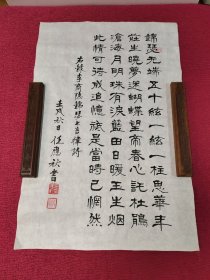 錦瑟无端五十絃一絃一柱思華年
莊生曉夢迷蝴蝶望帝春心託杜鵑
滄海月明珠有淚藍田日暖玉生烟
此情可待成追憶祗是當時已惘然
右錄李商隱錦瑟七言律詩
壬戌秋日任應秋書